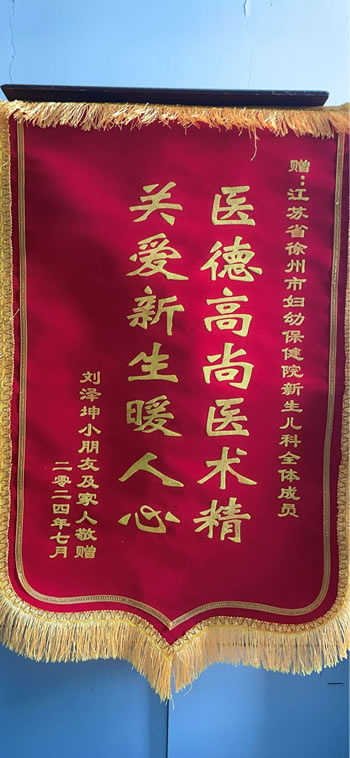 赠:江苏省徐州市妇幼保健院新生儿科全体成员
医德高尚医术精
关爱新生暖人心
刘泽坤小朋友及家人敬赠
二零二四年七月